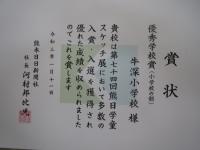 賞状
優秀学校賞（小学校の部）
牛深小学校 様
貴校は第七十四回熊日学童
スケッチ展において多数の
入賞・入選を獲得され
優れた成績を収められました
のでこれを賞します
令和三年一月十一日
熊本日日新聞社
社長 河村邦比児